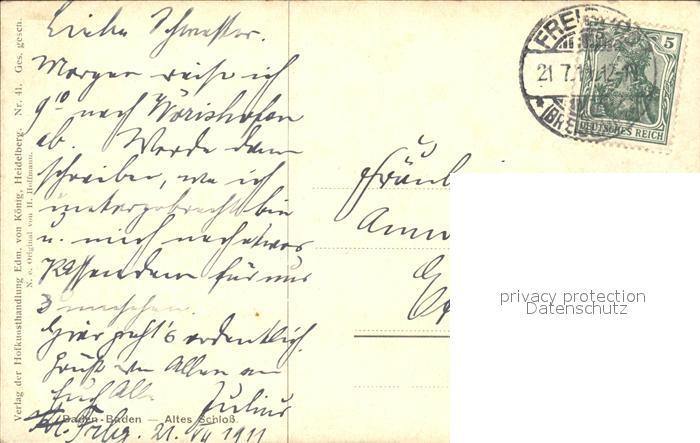 Liebe Schwester.
Morgen reise ich
9¹⁰ nach Wörishofen
ab. Werde dann
schreiben, wo ich
untergebracht bin
u. mich nach etwas
Passendem für uns
umsehen.
Hier geht's ordentlich.
Grüße von Allen an
Euch Alle.
Julius
Frbg. 21. VII 1911
Baden-Baden — Altes Schloß.
Verlag der Hofkunsthandlung Edm. von König, Heidelberg. Nr. 41. Ges. gesch.
N. e. Original von H. Hoffmann.
FREIBURG
21 7.11.12-1
(BREISGAU)
5
DEUTSCHES REICH
Fräul
Ann
privacy protection
Datenschutz